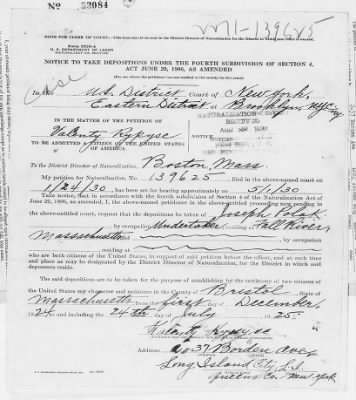 No. 33084
M1-139625
NOTE FOR CLERK OF COURT.
Form 2226-A
U. S. DEPARTMENT OF LABOR
NATURALIZATION SERVICE
NOTICE TO TAKE DEPOSITIONS UNDER THE FOURTH SUBDIVISION OF SECTION 4,
ACT JUNE 29, 1906, AS AMENDED
In the U.S. District Court of New York,
Eastern District of Brooklyn, NYC-NY
IN THE MATTER OF THE PETITION OF
Walenty Rykysc
TO BE ADMITTED A CITIZEN OF THE UNITED STATES
OF AMERICA
NOTICE
Boston, Mass
To the District Director of Naturalization,
My petition for Naturalization, No. 139625, filed in the above-named court on
1/24/30, has been set for hearing approximately on 5/1/30
Take notice, that in accordance with the fourth subdivision of section 4 of the Naturalization Act of
June 29, 1906, as amended, I, the above-named petitioner in the above-entitled proceeding now pending in
the above-entitled court, request that the depositions of Joseph Polak
by occupation Undertaker, residing at Fall River,
Massachusetts, by occupation
residing at
who are both citizens of the United States, in support of said petition before the officer, and at such time
and place as may be designated by the District Director of Naturalization, for the District in which said
deponents reside.
The said depositions are to be taken for the purpose of establishing by the testimony of two citizens of
the United States my character and residence in the County of Bristol, State of
Massachusetts from the first day of December,
1924 and including the 24th day of July, 1925.
Walenty Rykysc
Address: 37 Borden Ave,
Long Island City, L.I.
Queens Co. New York